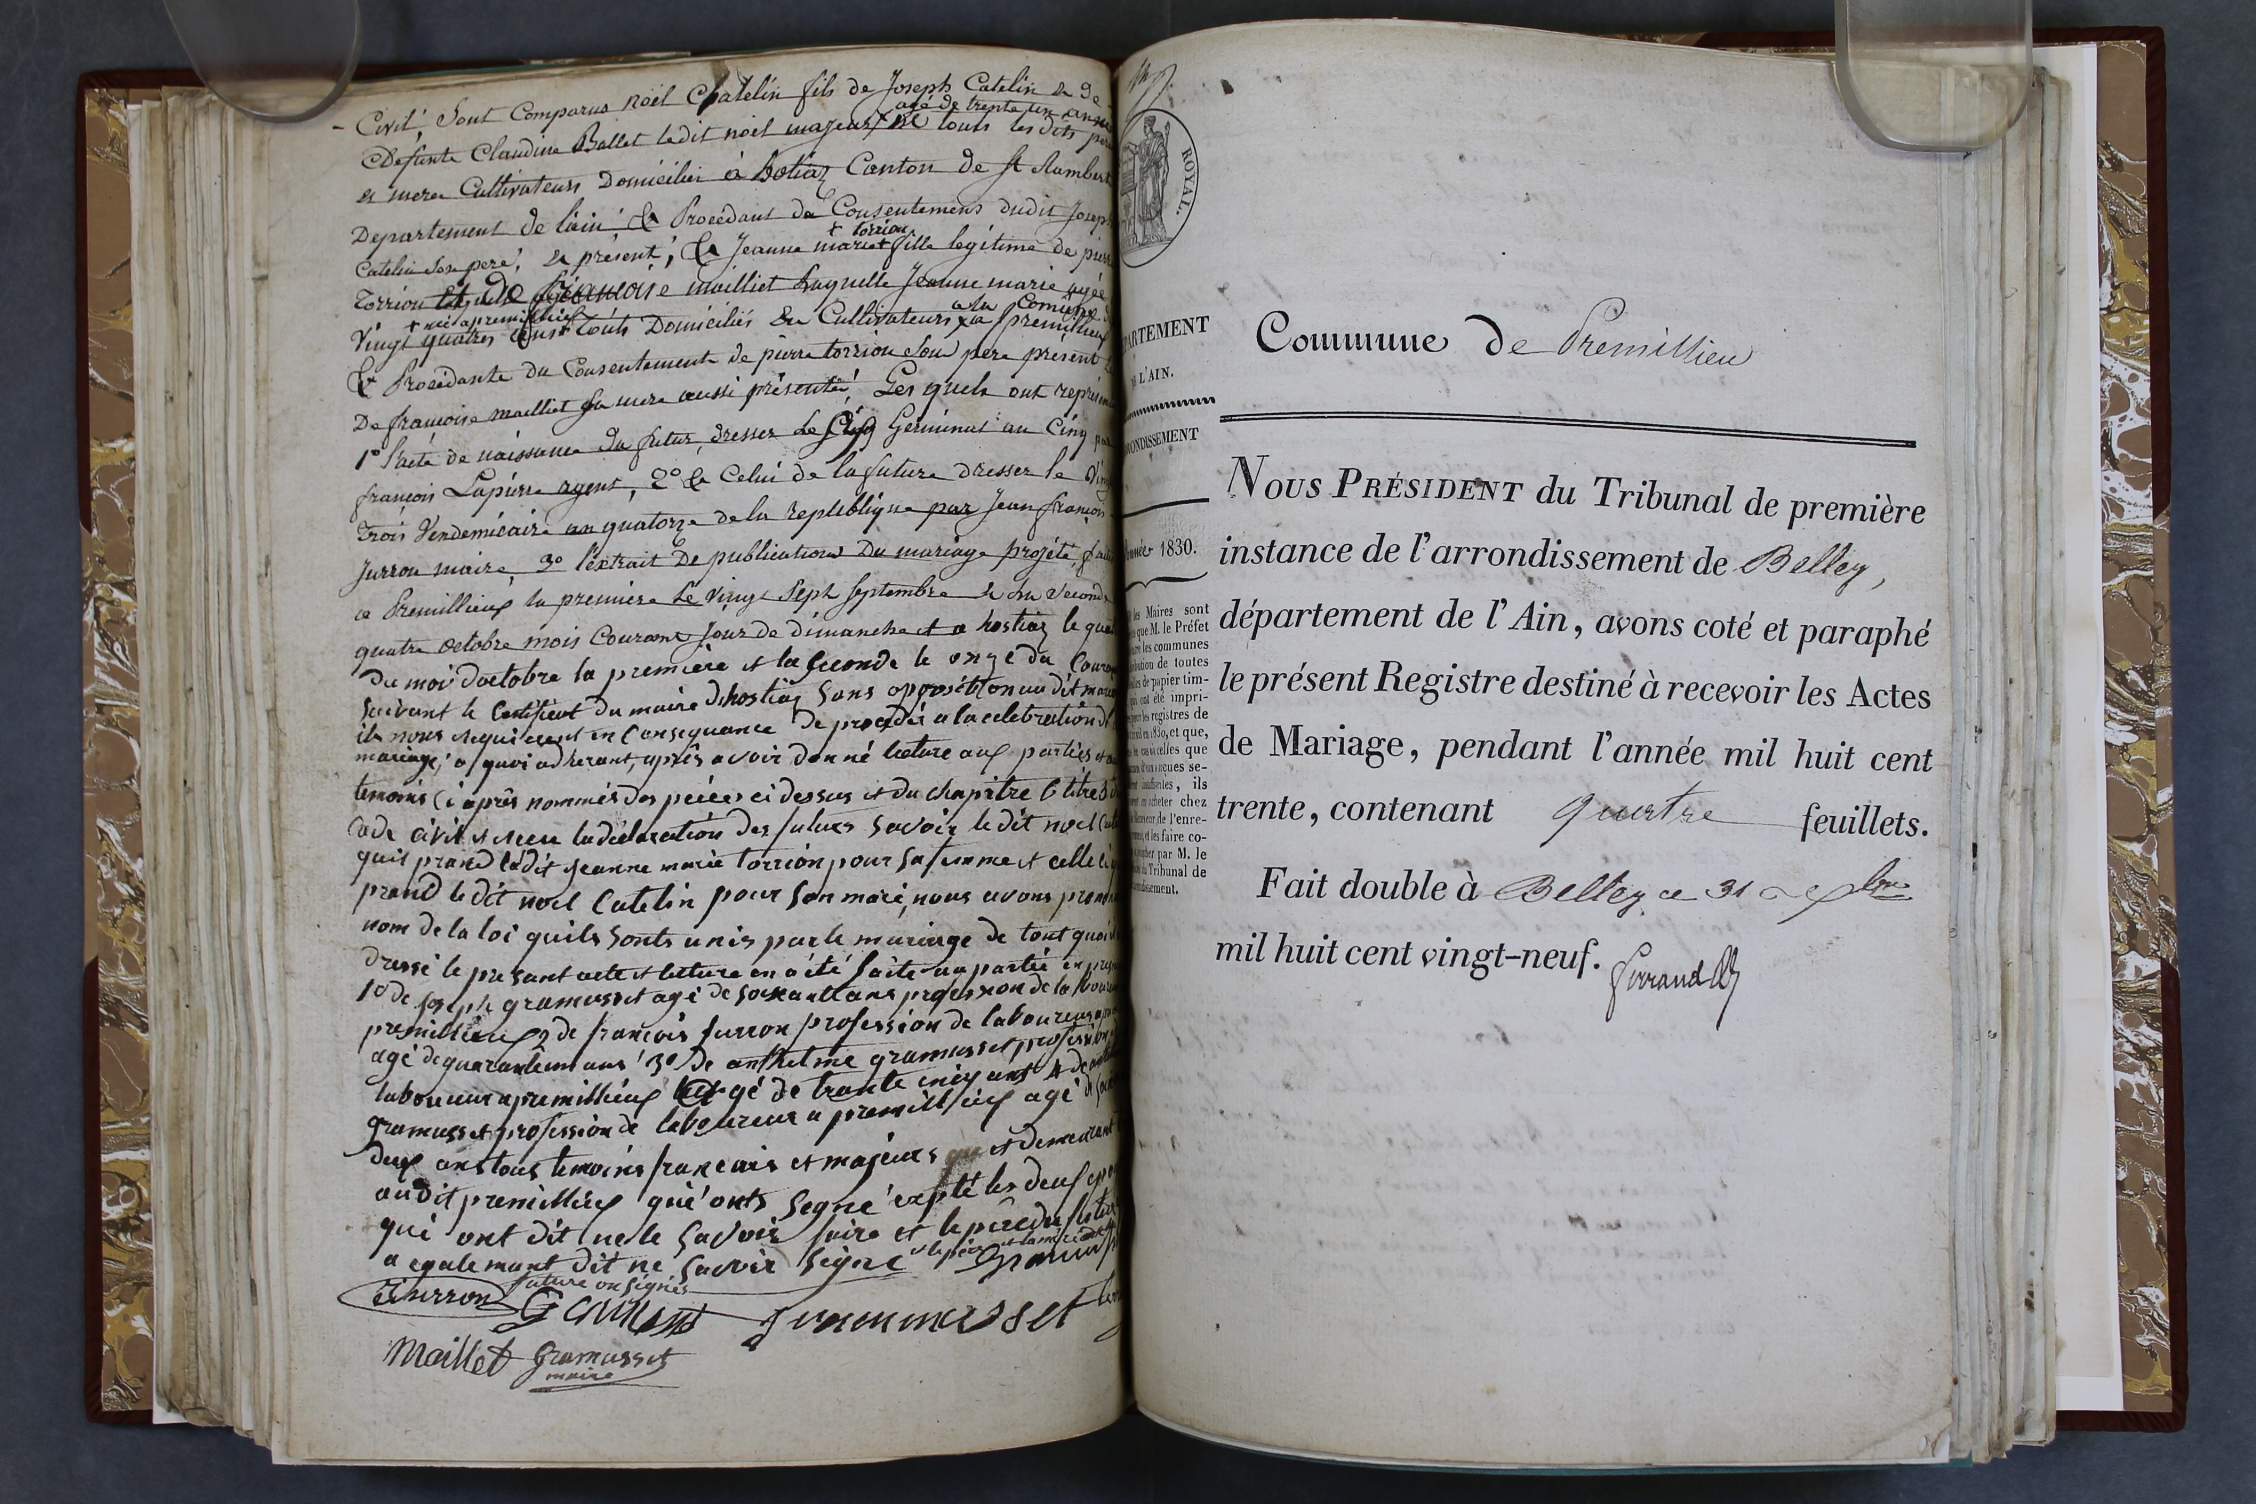 Civil Sont Comparus noël Chatelin fils de Joseph Catelin & de
agé de trente un ans
Defunte Claudine Ballet ledit noël majeur né touts les dits père
& mere Cultivateurs Domiciliés à hotiaz Canton de St Rambert
Departement de l'ain & Procédant du Consentement dudit Joseph
+ torrion
Catelin son pere, & présent, & Jeanne marie + fille legitime de pierre
Torrion Et De françoise mailliet Laquelle Jeanne marie agée
+ née a premillieux a la Comune
Vingt quatres ans + touts Domiciliés & Cultivateurs a premillieux
& Procédante du Consentement de pierre torrion Son pere présent &
De françoise mailliet Sa mere aussi présente, Les quels ont représenté
1° L'acte de naissance du futur, dresser Le Cinq Geminal an Cinq par
françois Lapierre agent, 2° & Celui de la future dresser le Vingt
trois Vendemiéaire an quatorze de la republique par Jean françois
Jurron maire, 3° l'extrait De publication Du mariage projété, faite
a Premillieux la premiere Le vingt Sept Septembre & la Seconde
quatre octobre mois Courant jour de dimanche et a hostiaz le quatre
Du moi d'octobre la première et la seconde le onze du Courant
suivant le Certificat du maire d'hostiaz sans opposition au dit mariage
ils nous requierent en Consequance de procédér a la celebration du
mariage, a quoi adherant, après avoir donné lecture aux parties et aux
temoins Ci après nommés des pièces ci dessus et du chapitre 6 titre 5 du
Code civil et reçu la declaration des futurs savoir le dit noel Catelin
quil prend la dit jeanne marie torrion pour sa femme et celle ci
prend le dit noel Catelin pour son mari, nous avons prononcé
nom de la loi quils sonts unis par le mariage de tout quoi
dressé le presant acte et lecture en a été faite au partie en presence
1° de joseph gramusset agé de soixante ans profession de laboureur
premillieux 2 de françois jurron profession de laboureur a
agé de quarante un ans 3° De anthelme gramusset profession
laboureur a premillieux agé de trante cinq ans 4 de
gramusset profession de laboureur a premillieux agé de
deux ans tous temoins francais et majeurs et demeurant
audit premillieux qui onts segné expté les deux epoux
qui ont dit ne le savoir faire et le père du futur
a egalemant dit ne savoir signé et le père et la mère de la
future on signés
Jurron Gramusset
Maillet Gramusset
maire
ROYAL.
DÉPARTEMENT
DE L'AIN.
ARRONDISSEMENT
Année 1830.
les Maires sont
que M. le Préfet
les communes
de toutes
de papier tim-
ont été impri-
les registres de
1830, et que,
celles que
reçues se-
, ils
acheter chez
de l'enre-
et les faire co-
par M. le
Tribunal de
Commune de Premillieu
NOUS PRÉSIDENT du Tribunal de première
instance de l'arrondissement de Belley,
département de l'Ain, avons coté et paraphé
le présent Registre destiné à recevoir les Actes
de Mariage, pendant l'année mil huit cent
trente, contenant quatre feuillets.
Fait double à Belley ce 31 Xbre
mil huit cent vingt-neuf.